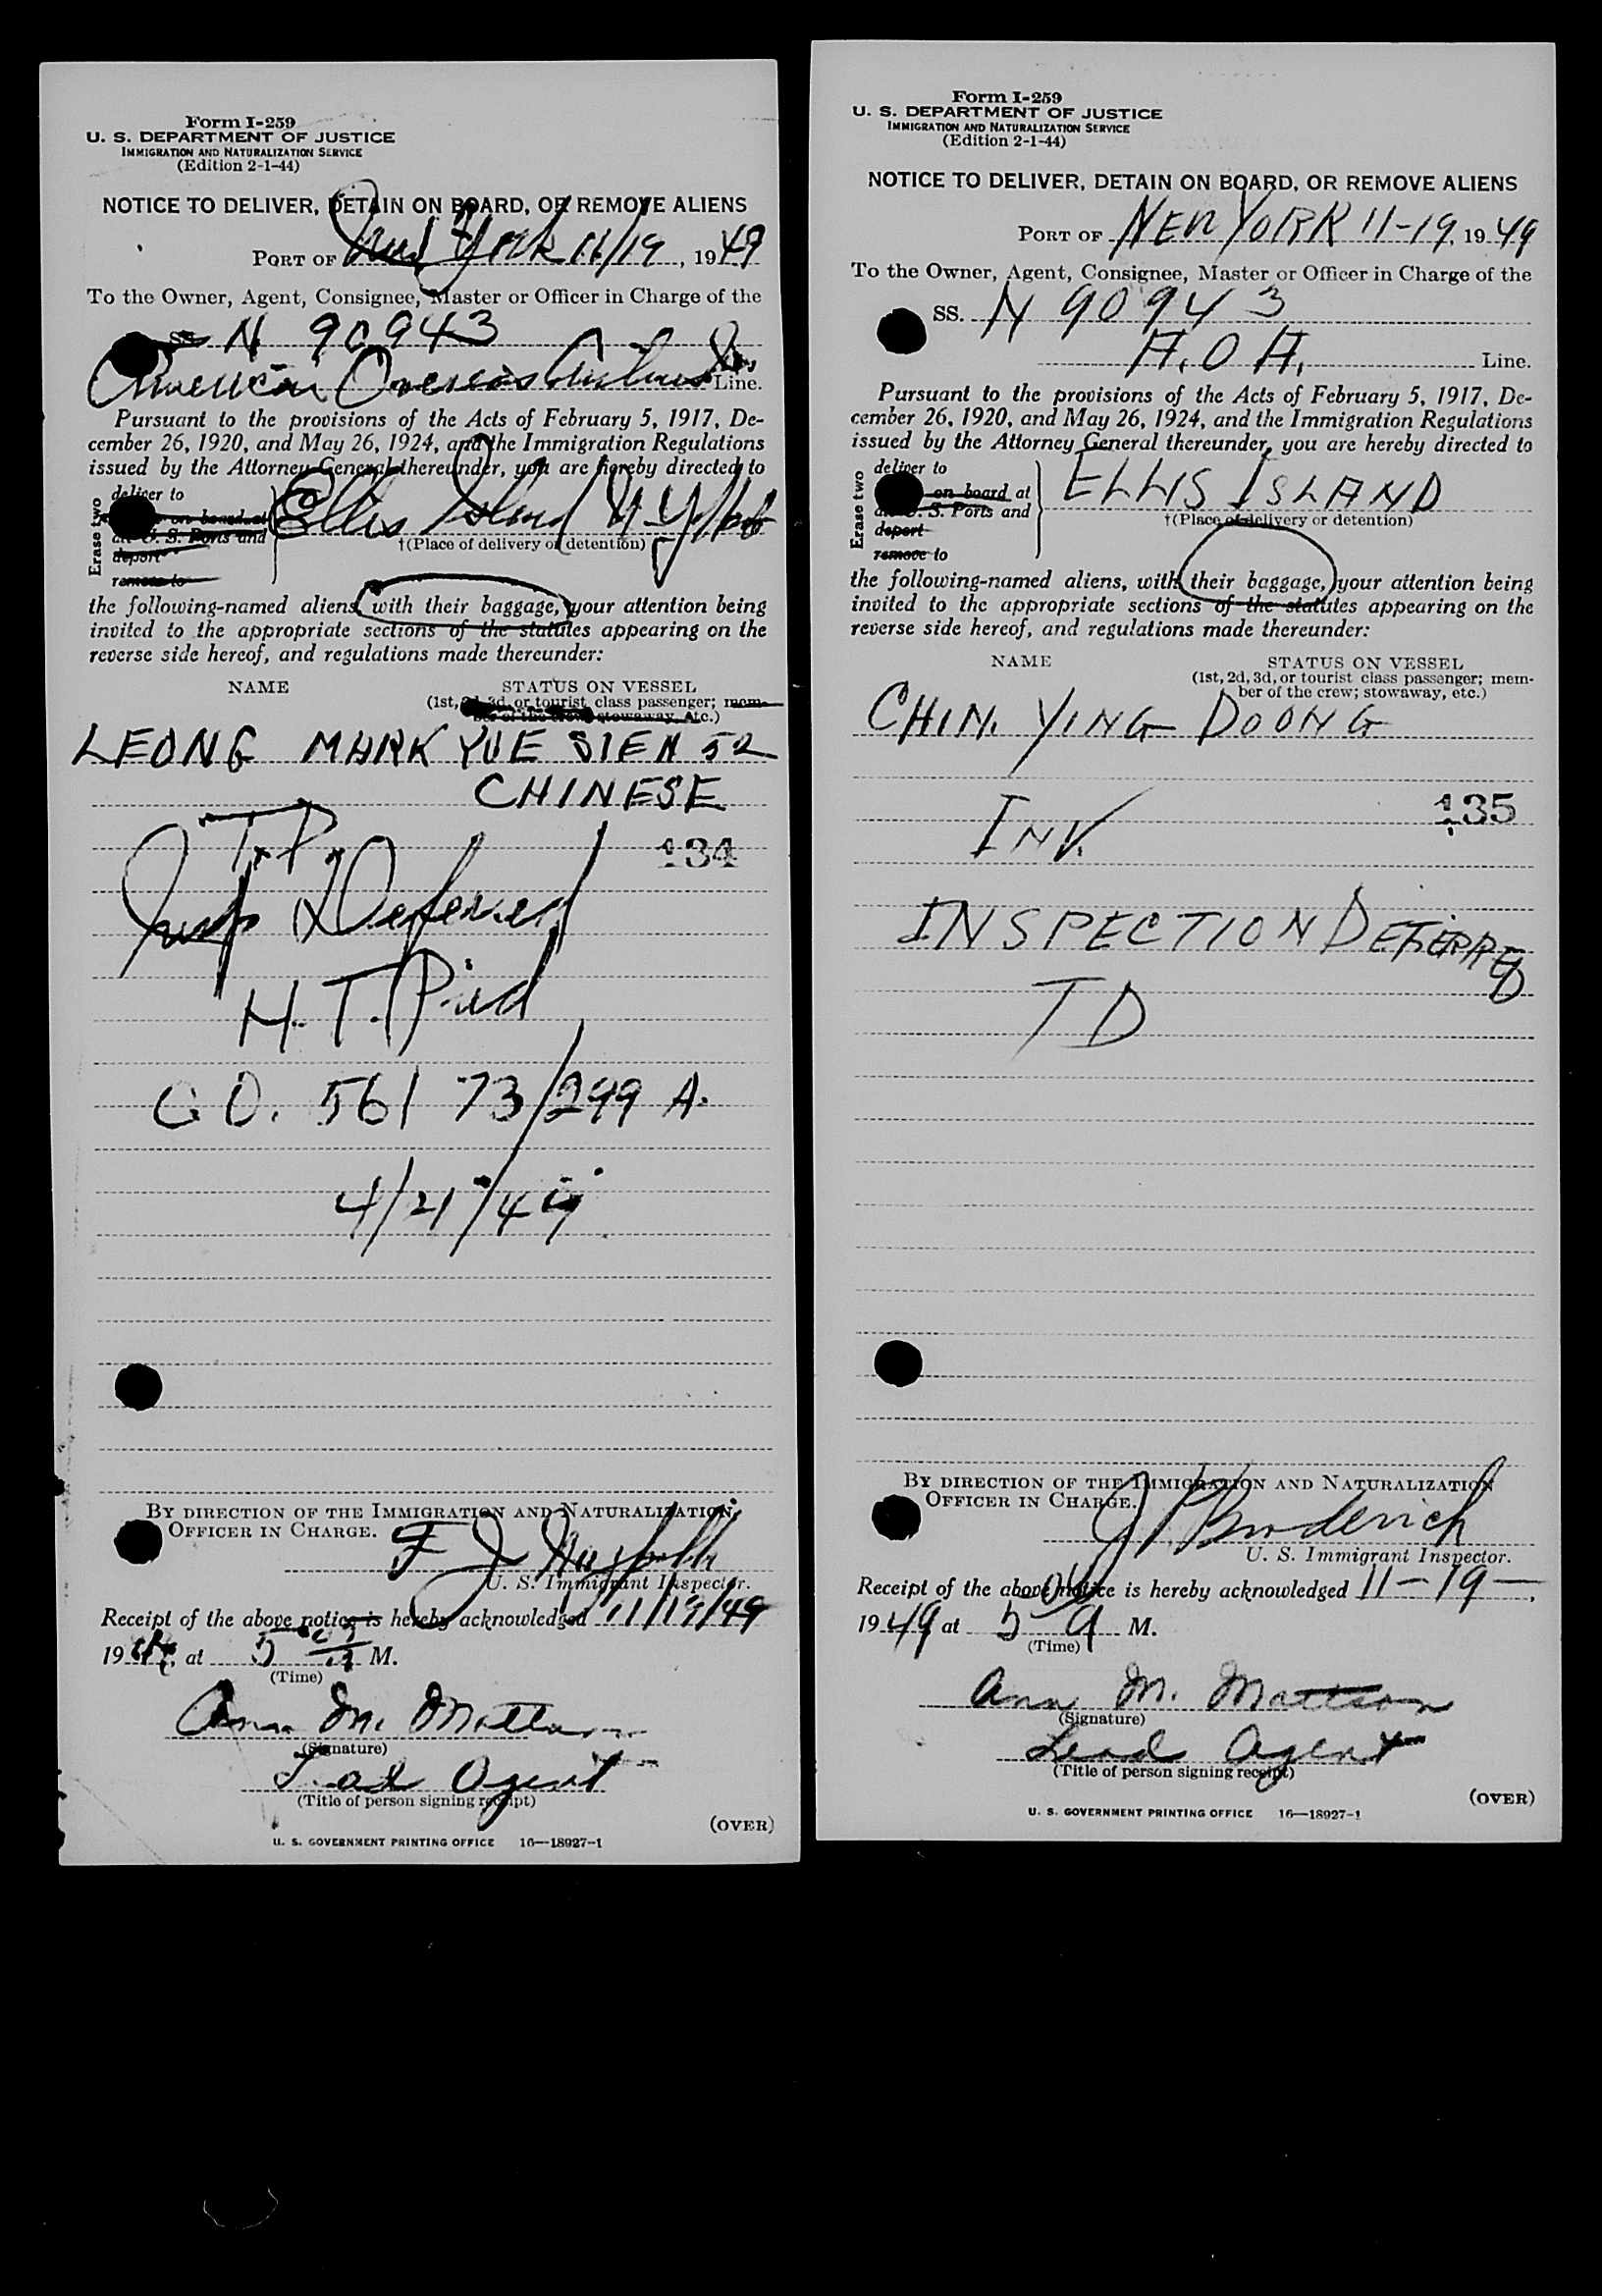 Form I-259
U. S. DEPARTMENT OF JUSTICE
IMMIGRATION AND NATURALIZATION SERVICE
(Edition 2-1-44)
NOTICE TO DELIVER, DETAIN ON BOARD, OR REMOVE ALIENS
PORT OF New York 11/19, 1949
To the Owner, Agent, Consignee, Master or Officer in Charge of the
SS. N 90943
American Overseas Airlines Line.
Pursuant to the provisions of the Acts of February 5, 1917, De-
cember 26, 1920, and May 26, 1924, and the Immigration Regulations
issued by the Attorney General thereunder, you are hereby directed to
Erase two
deliver to
on board at
U. S. Ports and
deport
remove to
Ellis Island N.Y.
†(Place of delivery or detention)
the following-named aliens, with their baggage, your attention being
invited to the appropriate sections of the statutes appearing on the
reverse side hereof, and regulations made thereunder:
NAME STATUS ON VESSEL
(1st, 2d, 3d, or tourist class passenger; mem-
ber of the crew; stowaway, etc.)
LEONG MARK YUE SIEN 52
CHINESE
T.P.
134
Insp Deferred
H. T.
C O. 561 73/299 A.
4/21/49
BY DIRECTION OF THE IMMIGRATION AND NATURALIZATION
OFFICER IN CHARGE.
F J
U. S. Immigrant Inspector.
Receipt of the above notice is hereby acknowledged 11/19/49
19 at 5 M.
(Time)
Ann M. Mattson
(Signature)
Lead Agent
(Title of person signing receipt)
(OVER)
U. S. GOVERNMENT PRINTING OFFICE 16—18927-1
Form I-259
U. S. DEPARTMENT OF JUSTICE
IMMIGRATION AND NATURALIZATION SERVICE
(Edition 2-1-44)
NOTICE TO DELIVER, DETAIN ON BOARD, OR REMOVE ALIENS
PORT OF NEW YORK 11-19, 1949
To the Owner, Agent, Consignee, Master or Officer in Charge of the
SS. N 90943
A.O.A. Line.
Pursuant to the provisions of the Acts of February 5, 1917, De-
cember 26, 1920, and May 26, 1924, and the Immigration Regulations
issued by the Attorney General thereunder, you are hereby directed to
Erase two
deliver to
on board at
U. S. Ports and
deport
remove to
ELLIS ISLAND
†(Place of delivery or detention)
the following-named aliens, with their baggage, your attention being
invited to the appropriate sections of the statutes appearing on the
reverse side hereof, and regulations made thereunder:
NAME STATUS ON VESSEL
(1st, 2d, 3d, or tourist class passenger; mem-
ber of the crew; stowaway, etc.)
CHIN. YING DOONG
135
INV.
INSPECTION DEFERRED
TD
BY DIRECTION OF THE IMMIGRATION AND NATURALIZATION
OFFICER IN CHARGE.
J P Broderick
U. S. Immigrant Inspector.
Receipt of the above notice is hereby acknowledged 11-19-,
1949 at 5 A M.
(Time)
Ann M. Mattson
(Signature)
Lead Agent
(Title of person signing receipt)
(OVER)
U. S. GOVERNMENT PRINTING OFFICE 16—18927-1